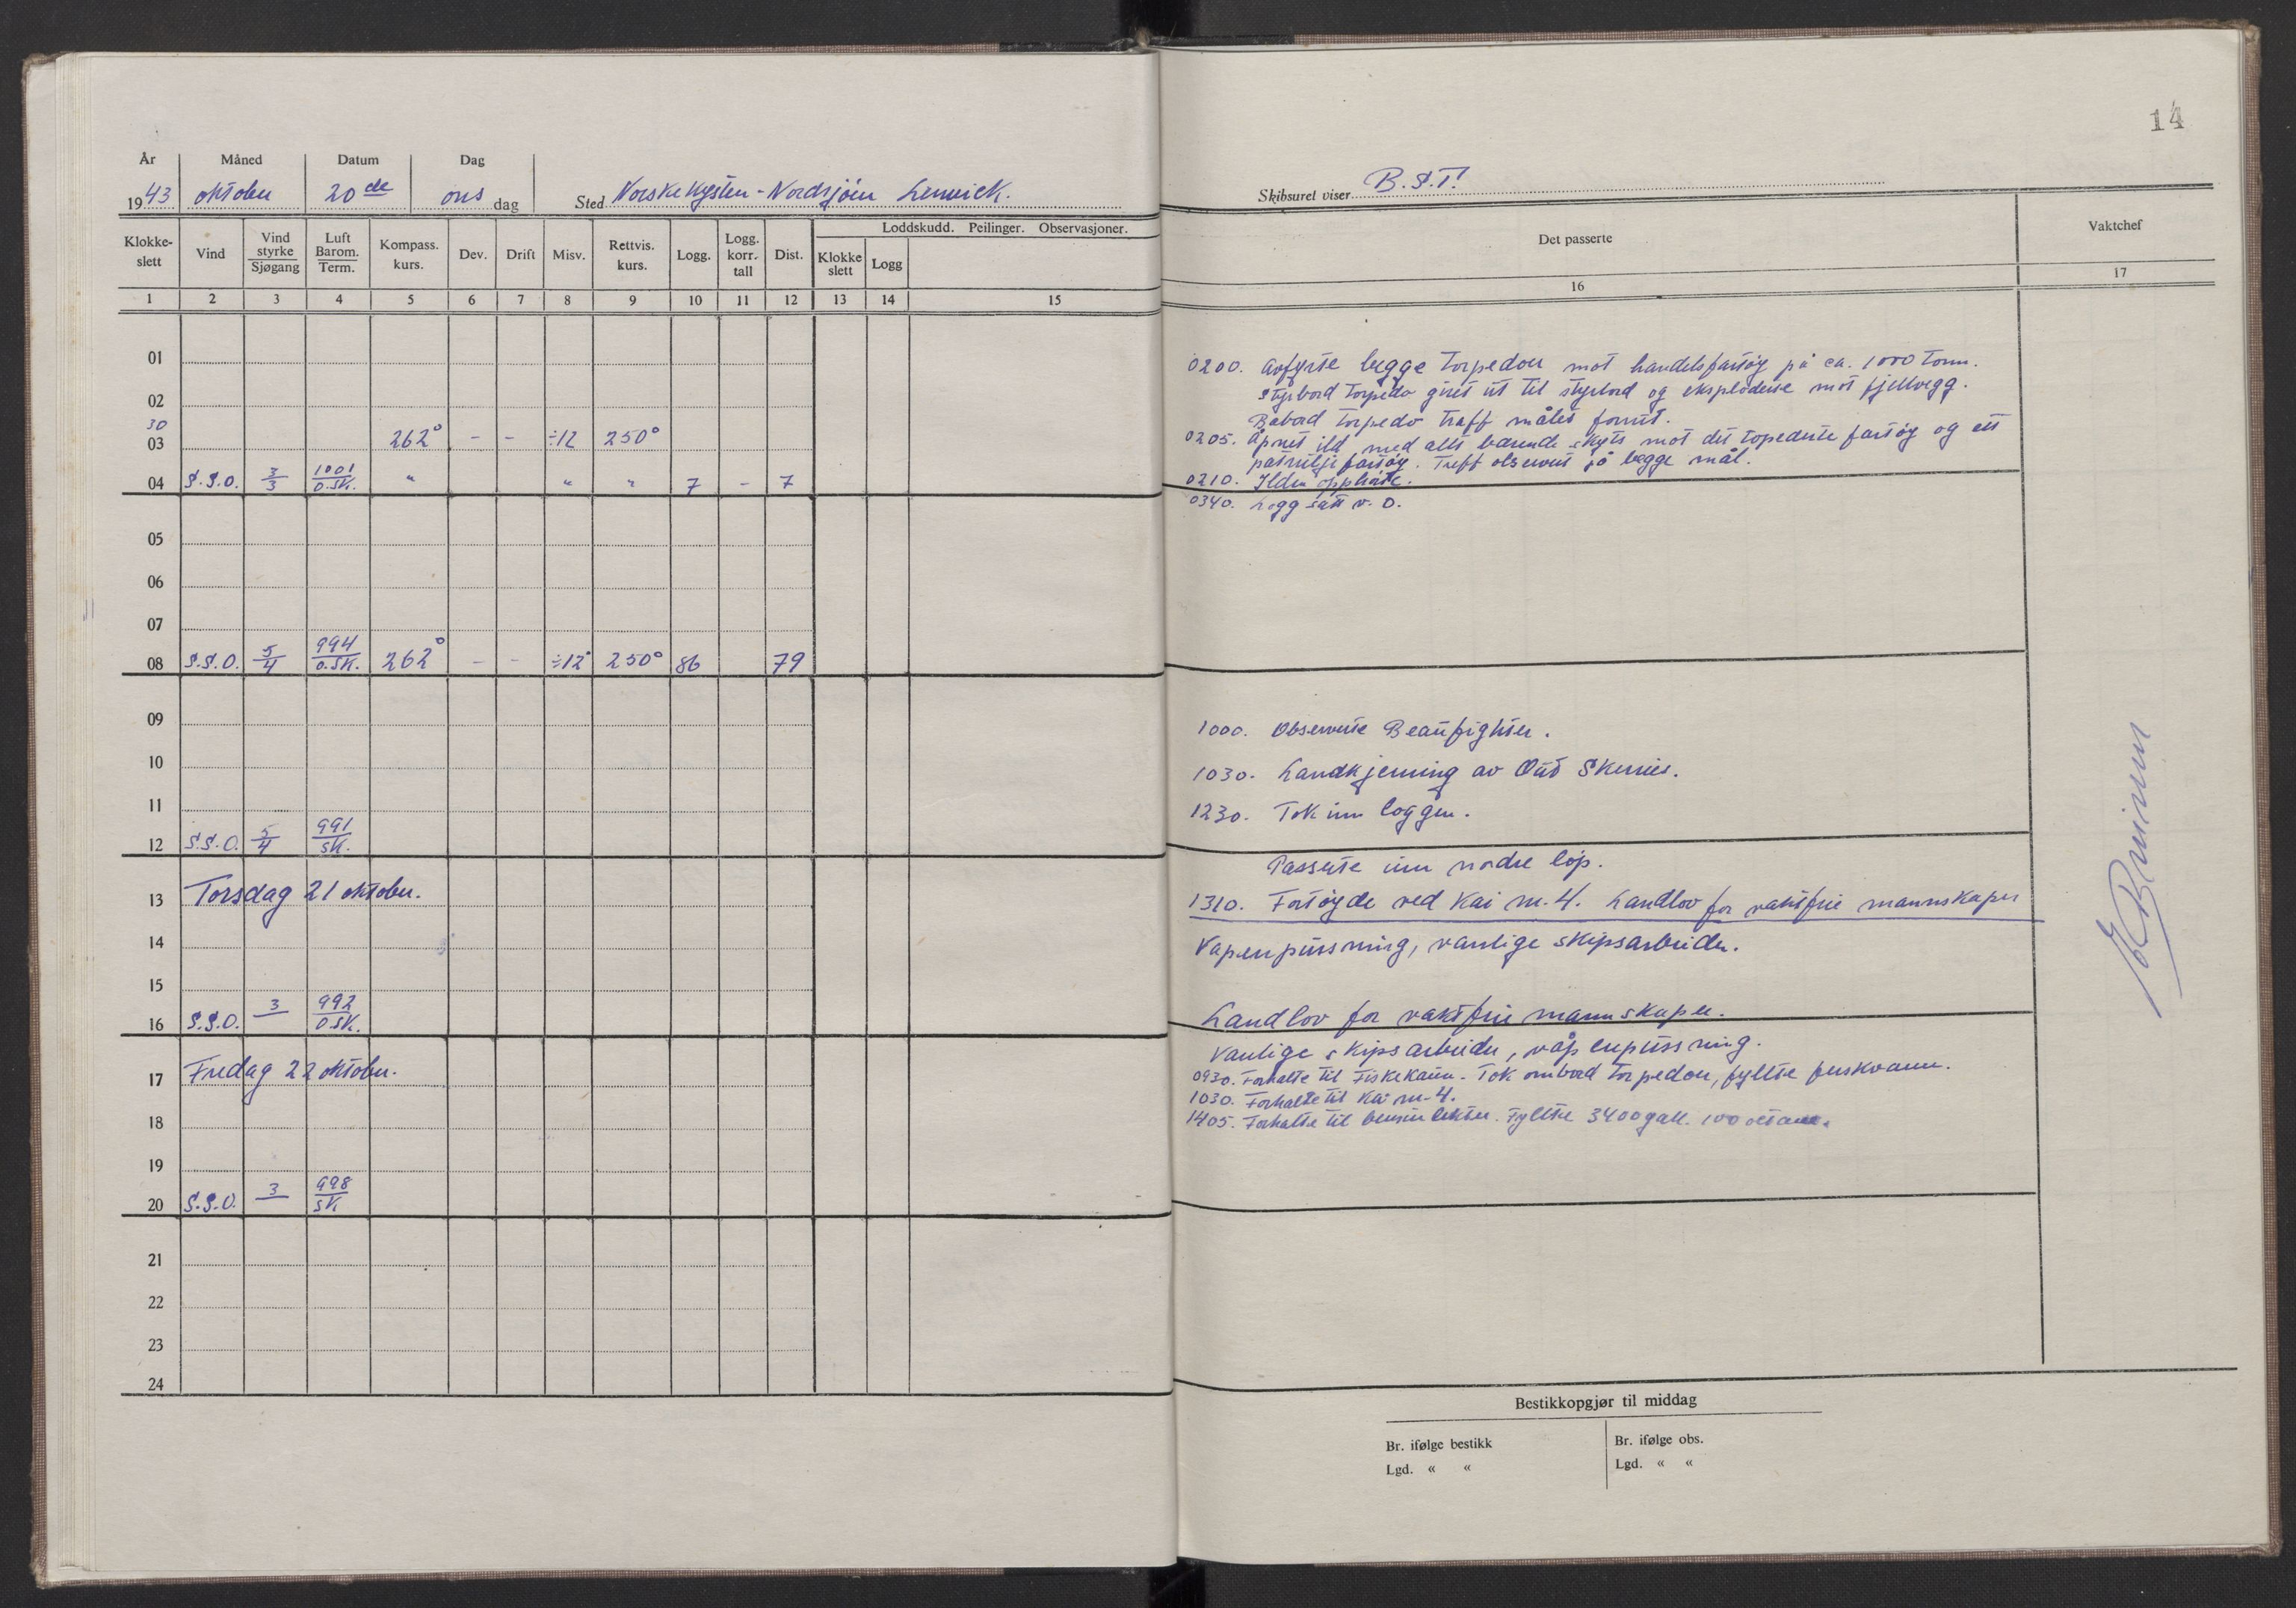 14
År Måned Datum Dag
1943 oktober 20de ons dag Sted Norskekysten - Nordsjöen Lerwick.
Skibsuret viser B.S.T.
Klokkeslett Vind Vind styrke Sjøgang Luft Barom. Term. Kompass. kurs. Dev. Drift Misv. Rettvis. kurs. Logg. Logg. korr. tall Dist. Loddskudd. Peilinger. Observasjoner. Klokke slett Logg
Det passerte Vaktchef
1 2 3 4 5 6 7 8 9 10 11 12 13 14 15
16 17
01
02
30
03 262° - - ÷12 250°
04 S.S.O. 3/3 1001/O.SK. " " " 7 - 7
05
06
07
08 S.S.O. 5/4 994/O.SK. 262° - - ÷12° 250° 86 79
09
10
11
12 S.S.O. 5/4 991/SK.
13 Torsdag 21 oktober.
14
15
16 S.S.O. 3 992/O.SK.
17 Fredag 22 oktober.
18
19
20 S.S.O. 3 998/SK
21
22
23
24
0200. Avfyrte begge torpedoer mot handelsfartöy på ca. 1000 tonn.
Styrbord torpedo giret ut til styrbord og eksploderte mot fjellvegg.
Babord torpedo traff målet forut.
0205. Åpnet ild med alt bærende skyts mot det topederte fartöy og ett
patruljefartöy. Treff observert på begge mål.
0210. Ilden opphörte.
0340. Logg satt v. O.
1000. Observerte Beaufighter.
1030. Landkjenning av Out Skerries.
1230. Tok inn loggen.
Passerte inn nordre löp.
1310. Fortöyde ved Kai nr. 4. Landlov for vaktfrie mannskaper
Vapenpussning, vanlige skipsarbeider.
Landlov for vaktfrie mannskaper.
Vanlige skipsarbeider, våpenpussning.
0930. Forhalte til Fiskekaien. Tok ombord torpedoer, fyllte ferskvann.
1030. Forhalte til Kai nr. 4.
1405. Forhalte til bensinlekter. Fyllte 3400 gall. 100 octane.
Bestikkopgjør til middag
Br. ifølge bestikk Br. ifølge obs.
Lgd. « « Lgd. « «